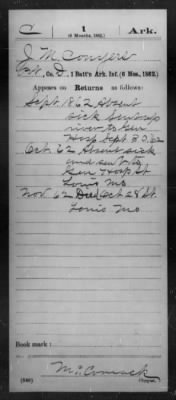 C | 1 | Ark.
(6 Months, 1862.)
J M Conyers
Pvt, Co. D, 1 Batt'n Ark. Inf. (6 Mos., 1862.)
Appears on Returns as follows:
Sept 1862 Absent
sick sent up
river to Gen
Hosp Sept 8 1862
Oct 62 Absent sick
and sent to
Gen Hosp St
Louis Mo
Nov 62 Died Oct 28 St
Louis Mo
Book mark:
McCormack
(546) Copyist.